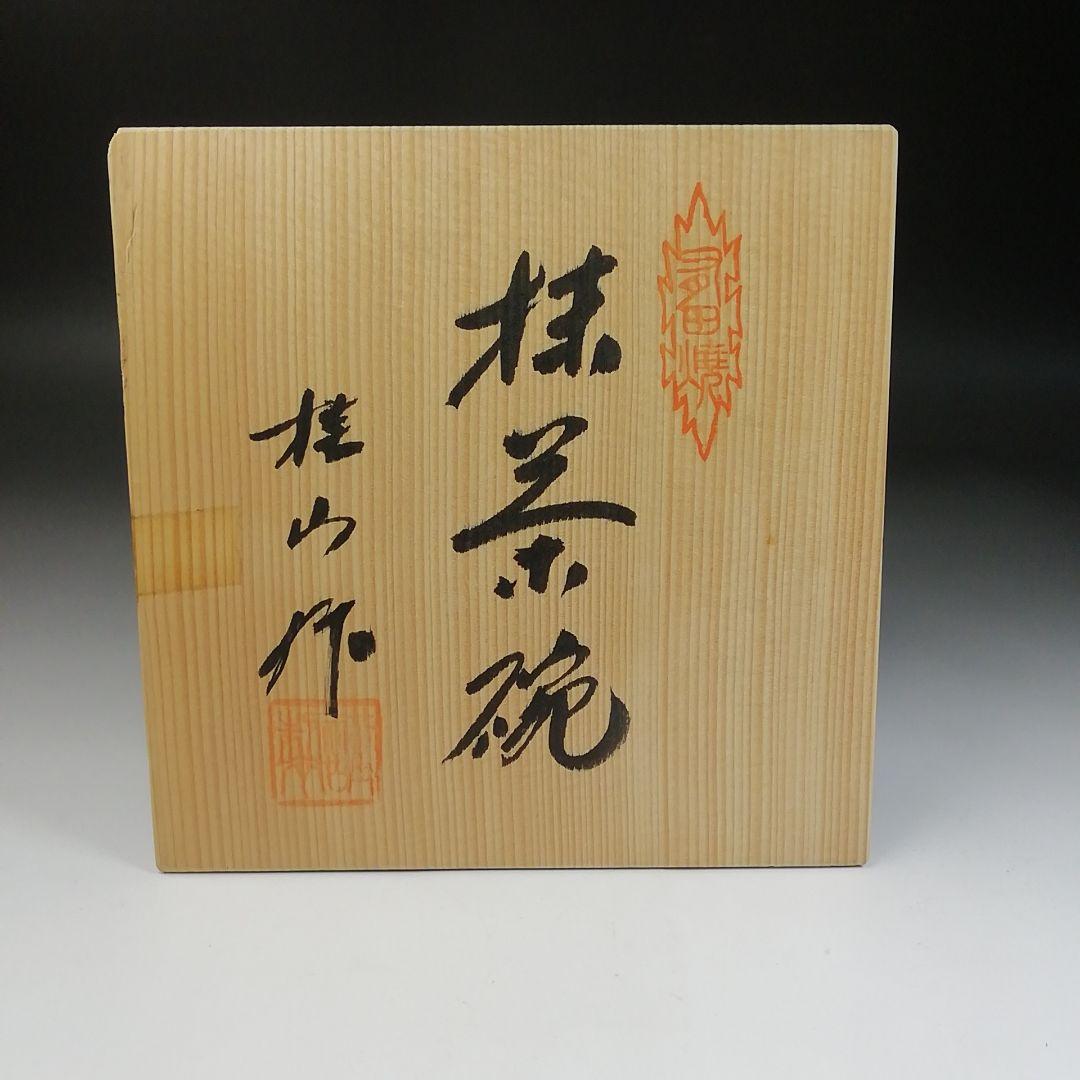 有田焼
抹茶碗
桂山作